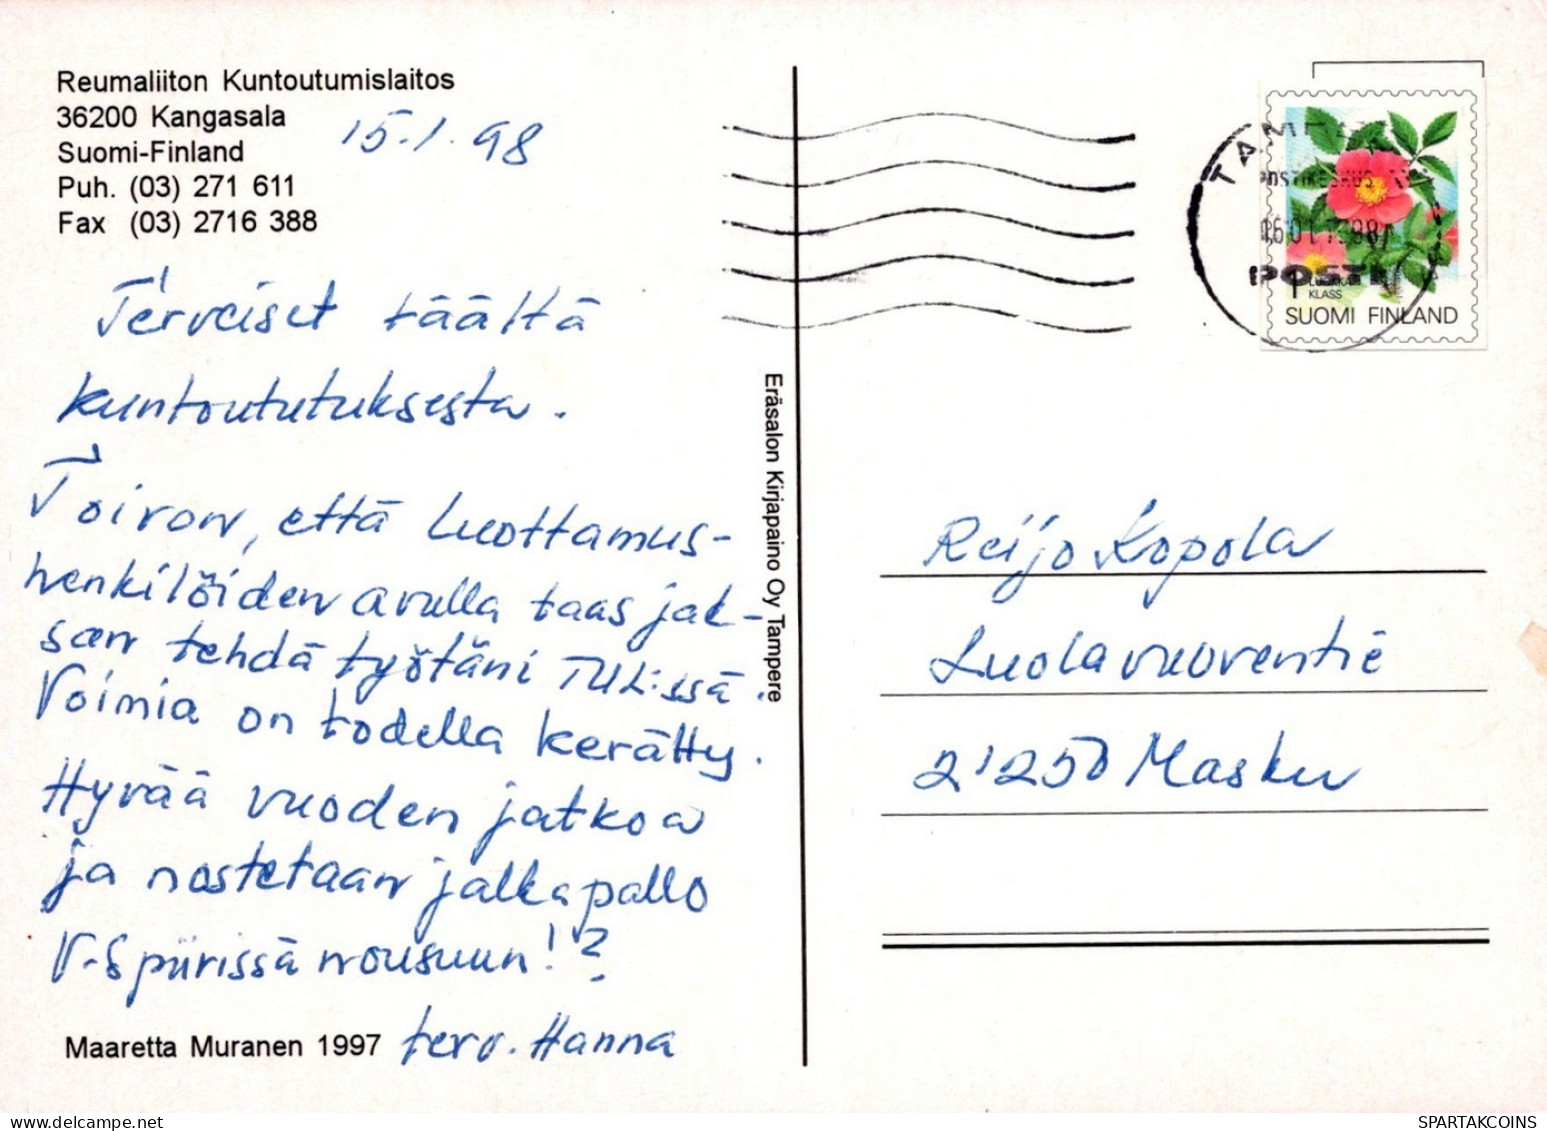 Reumaliiton Kuntoutumislaitos
36200 Kangasala
Suomi-Finland
Puh. (03) 271 611
Fax (03) 2716 388
15.1.98
Terveiset täältä
kuntoututuksesta.
Toivon, että luottamus-
henkilöiden avulla taas jak-
san tehdä työtäni TUL:ssä.
Voimia on todella kerätty.
Hyvää vuoden jatkoa
ja nostetaan jalkapallo
V-S piirissä nousuun!?
terv. Hanna
Maaretta Muranen 1997
Eräsalon Kirjapaino Oy Tampere
TAMPERE
POSTIKESKUS
16.01.1998
POSTI
1 LUOKKA
KLASS
SUOMI FINLAND
Reijo Kopola
Luolavuorentie
21250 Masku
SPARTAKCOINS